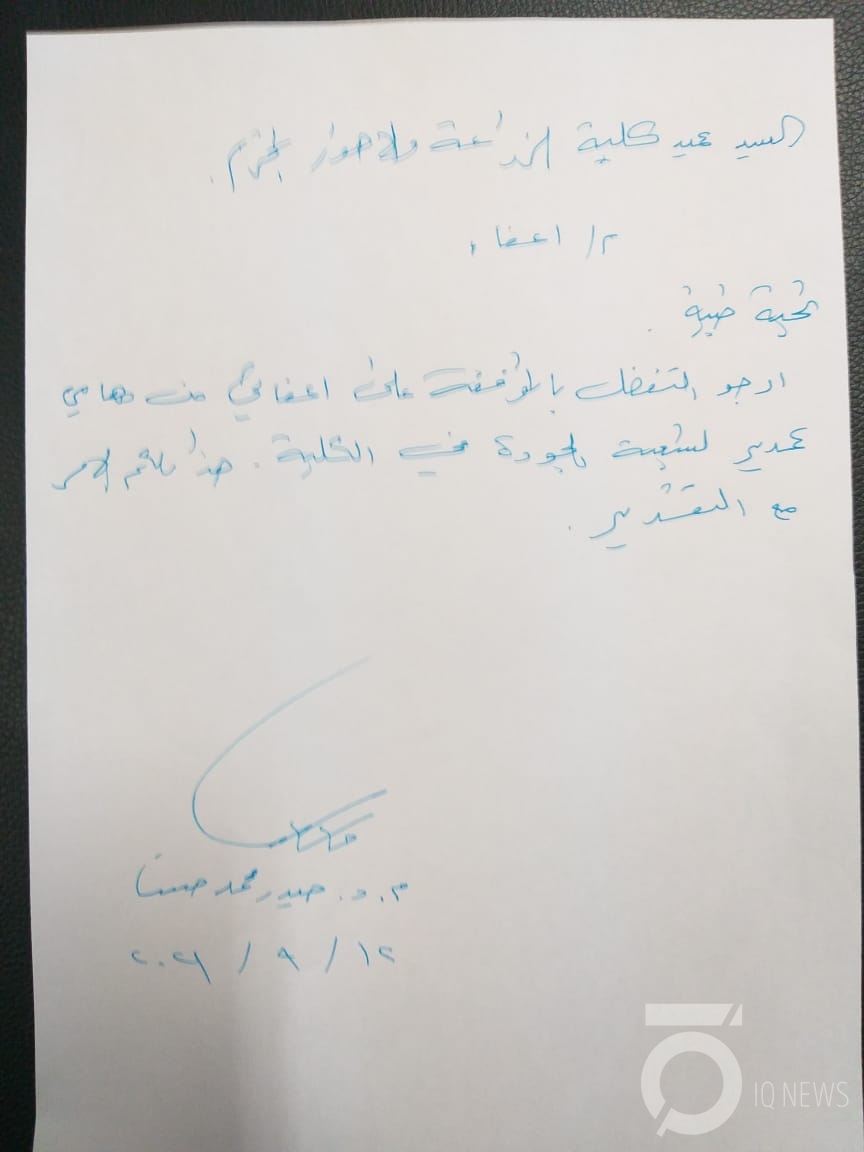 السيد عميد كلية الزراعة والاهوار المحترم.
م/ اعفاء
تحية طيبة.
ارجو التفضل بالموافقة على اعفائي من مهامي
كمدير لشعبة الجودة في الكلية. هذا ولكم الامر
مع التقدير.
م.د. حيدر محمد حسن
١٢ / ٩ / ٢٠٢١
IQ NEWS